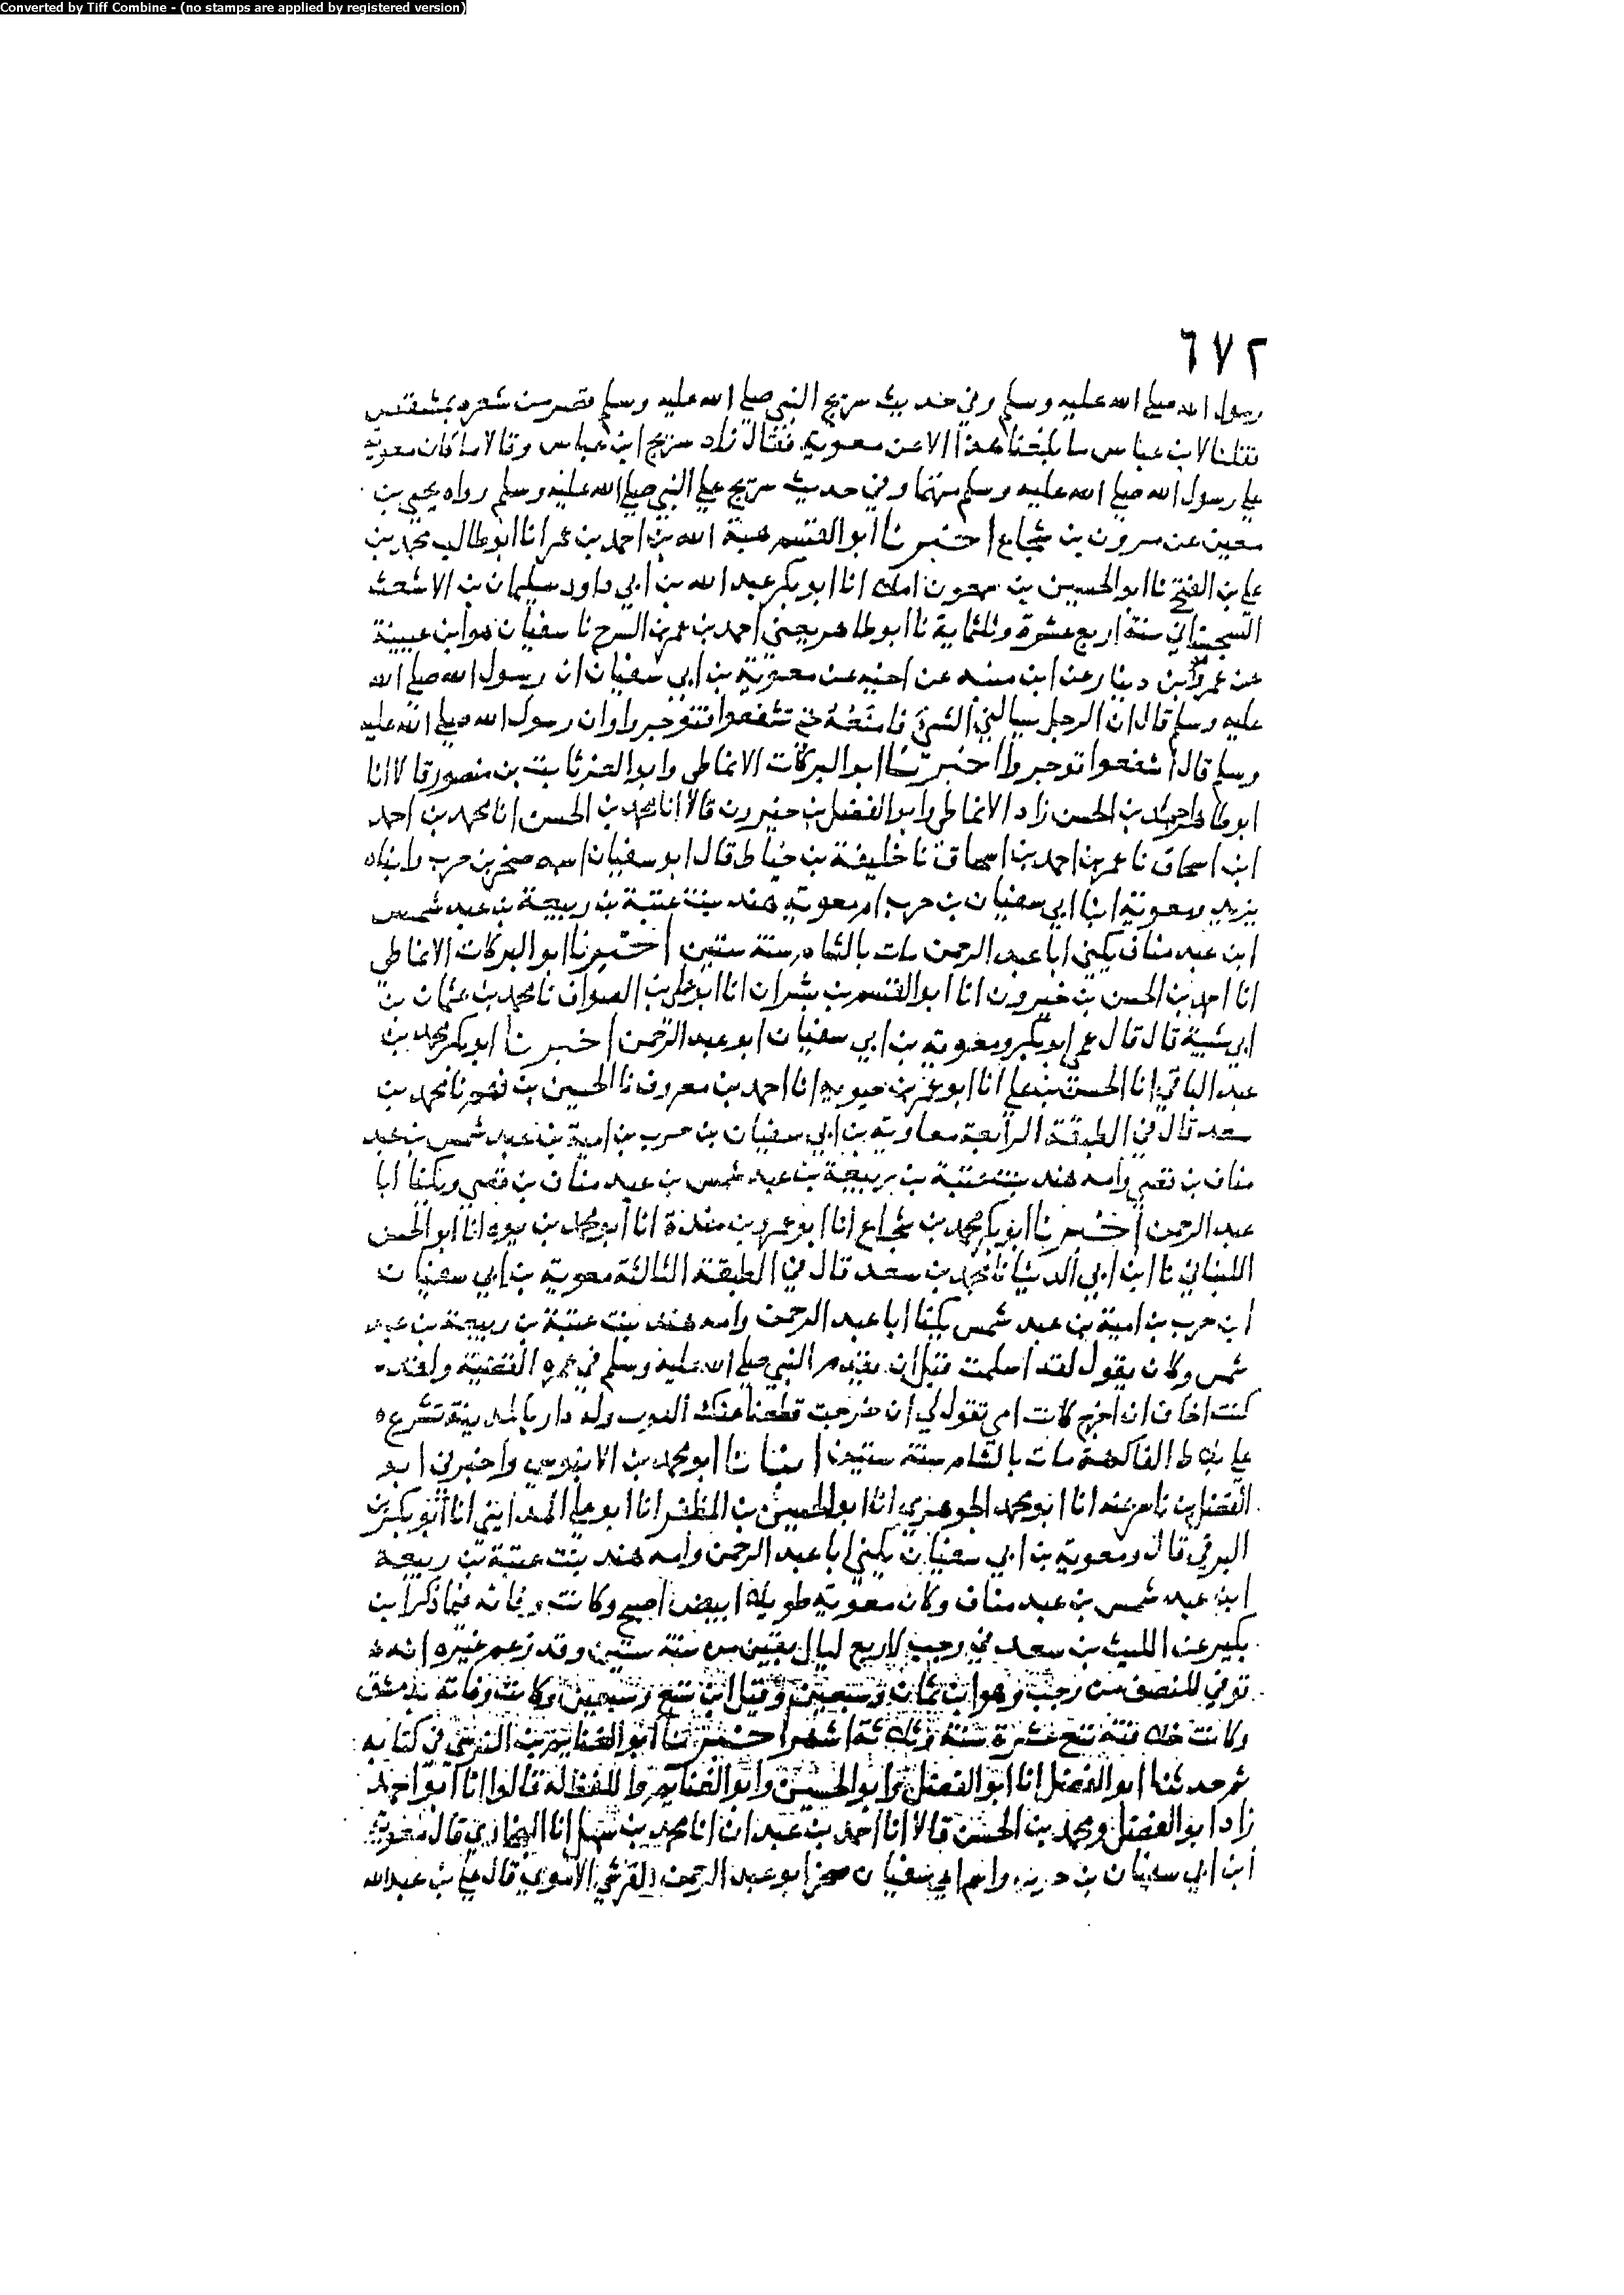 Converted by Tiff Combine - (no stamps are applied by registered version)
٦٧٢
رسول الله صلى الله عليه وسلم وفي حديث سريج النبي صلى الله عليه وسلم قصر من شعره بمشقص
فقلنا لابن عباس ما بلغنا هذا الا عن معوية فقال زاد سريج ابن عباس وقالا ما كان معوية
على رسول الله صلى الله عليه وسلم متهما وفي حديث سريج على النبي صلى الله عليه وسلم رواه يحيى بن
معين عن مروان بن شجاع اخبرنا ابو القسم هبة الله بن احمد بن عمر انا ابو طالب محمد بن
علي بن الفتح نا ابو الحسين بن سمعون املا انا ابو بكر عبد الله بن ابي داود سليمان بن الاشعث
السجستاني سنة اربع عشرة وثلثماية نا ابو طاهر يعني احمد بن عمرو بن السرح نا سفيان هو ابن عيينة
عن عمرو بن دينار عن ابن منبه عن اخيه عن معوية بن ابي سفيان ان رسول الله صلى الله
عليه وسلم قال ان الرجل يسالني الشيء فامنعه حتى تشفعوا فتوجروا وان رسول الله صلى الله عليه
وسلم قال اشفعوا توجروا اخبرنا ابو البركات الانماطي وابو العز ثابت بن منصور قالا انا
ابو طاهر احمد بن الحسن زاد الانماطي وابو الفضل بن خيرون قالا انا محمد بن الحسن انا محمد بن احمد
ابن اسحاق نا عمر بن احمد بن اسحاق نا خليفة بن خياط قال ابو سفيان اسمه صخر بن حرب وابناه
يزيد ومعوية ابنا ابي سفيان بن حرب ام معوية هند بنت عتبة بن ربيعة بن عبد شمس
ابن عبد مناف يكنى ابا عبد الرحمن مات بالشام سنة ستين اخبرنا ابو البركات الانماطي
انا احمد بن الحسن بن خيرون انا ابو القسم بن بشران انا ابو علي بن الصواف نا محمد بن عثمان بن
ابي شيبة قال قال عمي ابو بكر ومعوية بن ابي سفيان ابو عبد الرحمن اخبرنا ابو بكر محمد بن
عبد الباقي انا الحسن بن علي انا ابو عمر بن حيويه انا احمد بن معروف نا الحسين بن فهم نا محمد بن
سعد قال في الطبقة الرابعة معاوية بن ابي سفيان بن حرب بن امية بن عبد شمس بن عبد
مناف بن قصي وامه هند بنت عتبة بن ربيعة بن عبد شمس بن عبد مناف بن قصي ويكنا ابا
عبد الرحمن اخبرنا ابو بكر محمد بن شجاع انا ابو عمرو بن مندة انا ابو محمد بن يوه انا ابو الحسن
اللبناني نا ابن ابي الدنيا نا محمد بن سعد قال في الطبقة الثالثة معوية بن ابي سفيان
ابن حرب بن امية بن عبد شمس يكنا ابا عبد الرحمن وامه هند بنت عتبة بن ربيعة بن عبد
شمس وكان يقول لقد اسلمت قبل ان يقدم النبي صلى الله عليه وسلم في عمرة القضية ولقد
كنت اخاف ان اخرج كانت امي تقول لي ان خرجت قطعنا عنك القوت وله دار بالمدينة تشرع
على بلاط الفاكهة مات بالشام سنة ستين انبانا ابو محمد بن الابنوسي واخبرني ابو
الفضل بن ناصر عنه انا ابو محمد الجوهري انا ابو الحسين بن المظفر انا ابو علي المدايني انا ابو بكر بن
البرقي قال ومعوية بن ابي سفيان يكنى ابا عبد الرحمن وامه هند بنت عتبة بن ربيعة
ابن عبد شمس بن عبد مناف وكان معوية طويلا ابيض اصبح وكانت وفاته فيما ذكر ابن
بكير عن الليث بن سعد في رجب لاربع ليال بقين من سنة ستين وقد زعم غيره انه
توفي للنصف من رجب وهو ابن ثمان وسبعين وقيل ابن تسع وسبعين وكانت وفاته بدمشق
وكانت خلافته تسع عشرة سنة وثلاثة اشهر اخبرنا ابو الغنايم بن النرسي في كتابه
ثم حدثنا ابو الفضل انا ابو الفضل وابو الحسين وابو الغنايم واللفظ له قالوا انا ابو احمد
زاد ابو الفضل ومحمد بن الحسن قالا انا احمد بن عبدان انا محمد بن سهل انا البخاري قال معوية
ابن ابي سفيان بن حرب واسم ابي سفيان صخر ابو عبد الرحمن القرشي الاموي قال علي بن عبد الله